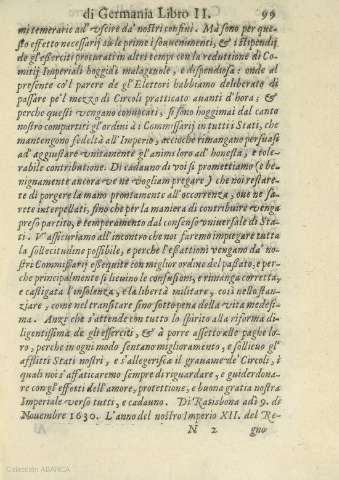 di Germania Libro II. 99
mi temerarie ad' vscire da' nostri confini. Mà sono per que-
sto effetto necessarij sù le prime i souuenimenti, & i stipendij
de gl'esserciti procurati in altri tempi con la reduttione di Co-
mitij Imperiali hoggidì malageuole, e dispendiosa: onde al
presente co'l parere de gl'Elettori habbiamo deliberato di
passare pe'l mezzo di Circoli pratticato auanti d'hora; &
perche questi vengano conuocati, si sono hoggimai dal canto
nostro compartiti gl'ordini à i Commissarij in tutti i Stati, che
mantengono fedeltà all'Imperio, accioche rimangan persuasi
ad' aggiustare vnitamente gl'animi loro ad' honesta, e tole-
rabile contributione. Di cadauno di voi si promettiamo (e be-
nignamente ancora ve ne vogliam pregare) che non restare-
te di porgere la mano prontamente all'occorrenza, oue ne sa-
rete interpellati, sino che per la maniera di contribuire venga
preso partito, e temperamento dal consenso vniuersale di Sta-
ti. V'assicuriamo all'incontro che noi faremo impiegare tutta
la sollecitudine possibile, e perche l'essattioni vengano da' no-
stri Commissarij essequite con miglior ordine del passato, e per-
che principalmente si leuino le confusioni, e rimanga corretta,
e castigata l'insolenza, e la libertà militare, così nello stan-
ziare, come nel transitare sino sotto pena della vita medesi-
ma. Anzi che s'attende con tutto lo spirito alla riforma di-
ligentissima de gli esserciti, & à porre assetto alle paghe lo-
ro, perche in ogni modo sentano miglioramento, e sollieuo gl'
afflitti Stati nostri, e s'allegerisca il grauame de' Circoli, i
quali noi s'affaticaremo sempre di riguardare, e guiderdona-
re con gl'effetti dell'amore, protettione, e buona gratia nostra
Imperiale verso tutti, e cadauno. Di' Ratisbona adì 9. di
Nouembre 1630. L'anno del nostro Imperio XII. del Re-
N 2 gno
Colección ABANCA